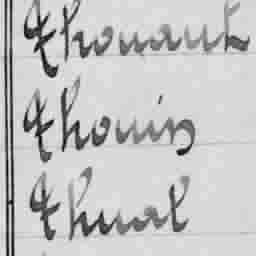 Thouault
Thouin
Thual